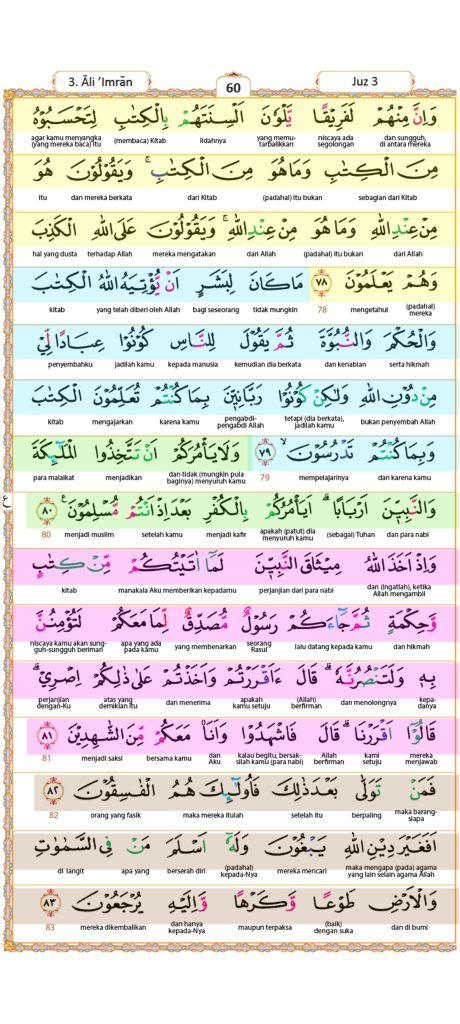 3. Āli ’Imrān
60
Juz 3
وَاِنَّ مِنْهُمْ لَفَرِيْقًا يَّلْوٗنَ اَلْسِنَتَهُمْ بِالْكِتٰبِ لِتَحْسَبُوْهُ
dan sungguh, di antara mereka niscaya ada segolongan yang memu-tarbalikkan lidahnya (membaca) Kitab agar kamu menyangka (yang mereka baca) itu
مِنَ الْكِتٰبِ وَمَا هُوَ مِنَ الْكِتٰبِۚ وَيَقُوْلُوْنَ هُوَ
sebagian dari Kitab (padahal) itu bukan dari Kitab dan mereka berkata itu
مِنْ عِنْدِ اللّٰهِ وَمَا هُوَ مِنْ عِنْدِ اللّٰهِۚ وَيَقُوْلُوْنَ عَلَى اللّٰهِ الْكَذِبَ
dari Allah (padahal) itu bukan dari Allah mereka mengatakan terhadap Allah hal yang dusta
وَهُمْ يَعْلَمُوْنَ ٧٨ مَا كَانَ لِبَشَرٍ اَنْ يُّؤْتِيَهُ اللّٰهُ الْكِتٰبَ
(padahal) mereka mengetahui 78 tidak mungkin bagi seseorang yang telah diberi oleh Allah kitab
وَالْحُكْمَ وَالنُّبُوَّةَ ثُمَّ يَقُوْلَ لِلنَّاسِ كُوْنُوْا عِبَادًا لِّيْ
serta hikmah dan kenabian kemudian dia berkata kepada manusia jadilah kamu penyembahku
مِنْ دُوْنِ اللّٰهِ وَلٰكِنْ كُوْنُوْا رَبَّانِيّٖنَ بِمَا كُنْتُمْ تُعَلِّمُوْنَ الْكِتٰبَ
bukan penyembah Allah tetapi (dia berkata), jadilah kamu pengabdi-pengabdi Allah karena kamu mengajarkan kitab
وَبِمَا كُنْتُمْ تَدْرُسُوْنَۙ ٧٩ وَلَا يَأْمُرَكُمْ اَنْ تَتَّخِذُوا الْمَلٰۤىِٕكَةَ
dan karena kamu mempelajarinya 79 dan tidak (mungkin pula baginya) menyuruh kamu menjadikan para malaikat
ع
وَالنَّبِيّٖنَ اَرْبَابًاۗ اَيَأْمُرُكُمْ بِالْكُفْرِ بَعْدَ اِذْ اَنْتُمْ مُّسْلِمُوْنَࣖ ٨٠
dan para nabi (sebagai) Tuhan apakah (patut) dia menyuruh kamu menjadi kafir setelah kamu menjadi muslim 80
وَاِذْ اَخَذَ اللّٰهُ مِيْثَاقَ النَّبِيّٖنَ لَمَآ اٰتَيْتُكُمْ مِّنْ كِتٰبٍ
dan (ingatlah), ketika Allah mengambil perjanjian dari para nabi manakala Aku memberikan kepadamu kitab
وَّحِكْمَةٍ ثُمَّ جَاۤءَكُمْ رَسُوْلٌ مُّصَدِّقٌ لِّمَا مَعَكُمْ لَتُؤْمِنُنَّ
dan hikmah lalu datang kepada kamu seorang Rasul yang membenarkan apa yang ada pada kamu niscaya kamu akan sung-guh-sungguh beriman
بِهٖ وَلَتَنْصُرُنَّهٗۗ قَالَ ءَاَقْرَرْتُمْ وَاَخَذْتُمْ عَلٰى ذٰلِكُمْ اِصْرِيْۗ
kepa-danya dan menolongnya (Allah) berfirman apakah kamu setuju dan menerima atas yang demikian itu perjanjian dengan-Ku
قَالُوْٓا اَقْرَرْنَاۗ قَالَ فَاشْهَدُوْا وَاَنَا۠ مَعَكُمْ مِّنَ الشّٰهِدِيْنَ ٨١
mereka menjawab kami setuju Allah berfirman kalau begitu, bersak-silah kamu (para nabi) dan Aku bersama kamu menjadi saksi 81
فَمَنْ تَوَلّٰى بَعْدَ ذٰلِكَ فَاُولٰۤىِٕكَ هُمُ الْفٰسِقُوْنَ ٨٢
maka barang-siapa berpaling setelah itu maka mereka itulah orang yang fasik 82
اَفَغَيْرَ دِيْنِ اللّٰهِ يَبْغُوْنَ وَلَهٗٓ اَسْلَمَ مَنْ فِى السَّمٰوٰتِ
maka mengapa (pada) agama yang lain selain agama Allah mereka mencari (padahal) kepada-Nya berserah diri apa yang di langit
وَالْاَرْضِ طَوْعًا وَّكَرْهًا وَّاِلَيْهِ يُرْجَعُوْنَ ٨٣
dan di bumi (baik) dengan suka maupun terpaksa dan hanya kepada-Nya mereka dikembalikan 83